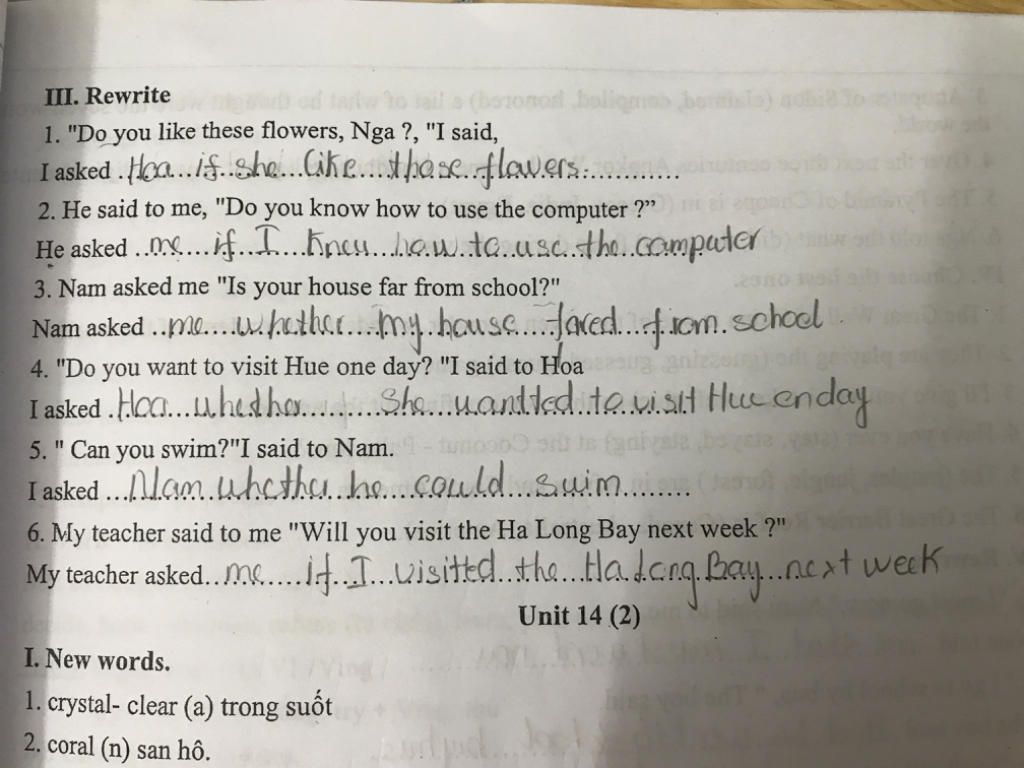 III. Rewrite
1. "Do you like these flowers, Nga ?, "I said,
I asked . Hoa...if..she...like....those..flowers.............
2. He said to me, "Do you know how to use the computer ?”
He asked ..me....if...I...knew...how..to..use..the..computer
3. Nam asked me "Is your house far from school?"
Nam asked ..me...whether...my.house...fared...from.school
4. "Do you want to visit Hue one day? "I said to Hoa
I asked .Hoa...whether..........She...wantted..to.visit Hue onday
5. " Can you swim?"I said to Nam.
I asked ...Nam.whether..he...could...swim........
6. My teacher said to me "Will you visit the Ha Long Bay next week ?"
My teacher asked..me....if..I...visitted..the...Ha.long.Bay...next week
Unit 14 (2)
I. New words.
1. crystal- clear (a) trong suốt
2. coral (n) san hô.